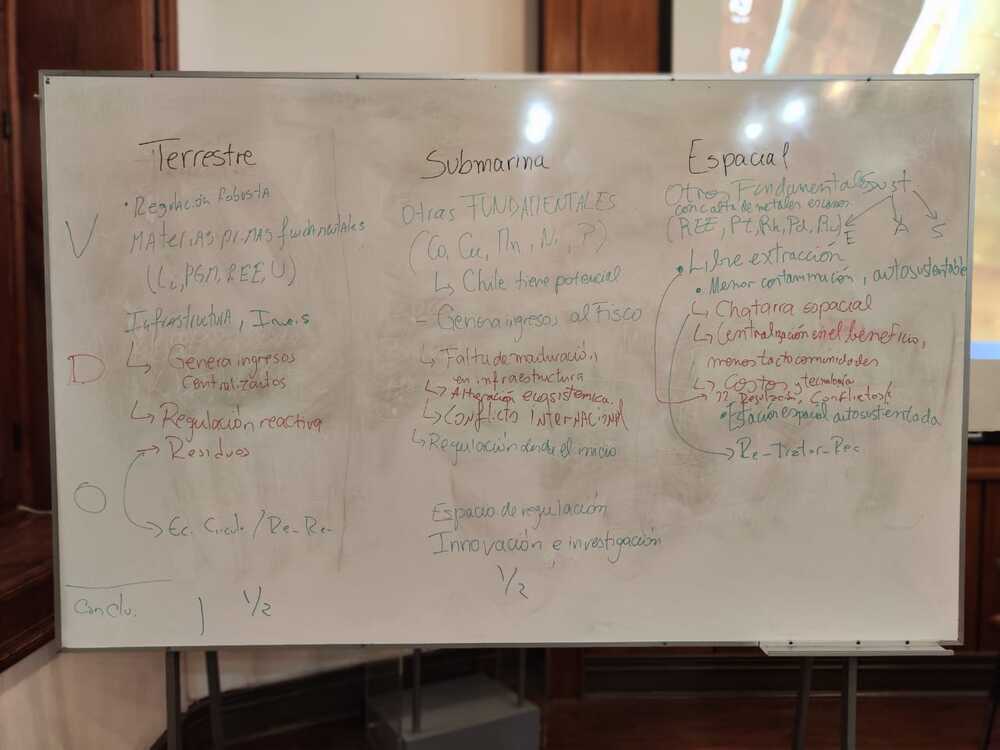 Terrestre
V
• Regulación Robusta
Materias primas fundamentales
(Li, PGM, REE, U)
Infraestructura, Invers
D
↳ Genera ingresos
centralizados
↳ Regulación reactiva
→ Residuos
O
→ Ec. Circular / Re- Re-
Conclu.
1 1/2
Submarina
Otras FUNDAMENTALES
(Co, Cu, Mn, Ni, P)
↳ Chile tiene potencial
- Genera ingresos al Fisco
↳ Falta de maduración
en infraestructura
↳ Alteración ecosistémica.
↳ Conflicto INTERNACIONAL
↳ Regulación desde el inicio
Espacio de regulación
Innovación e investigación
1/2
Espacial
Otros Fundamentales Sust
con carta de metales escasos
(REE, Pt, Rh, Pd, Ru) E A S
• Libre extracción
• Menor contaminación, autosustentable
↳ Chatarra espacial
↳ Centralización en el beneficio,
menos tacto comunidades
↳ Costos y tecnología
?? Regulación, Conflictos
• Estación espacial autosustentada
→ Re-Trator-Rec.